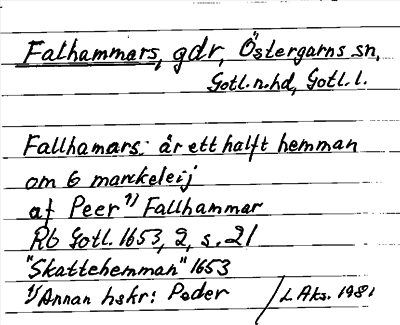 Falhammars, gdr, Östergarns sn,
Gotl. n. hd, Gotl. l.
Fallhamars: är ett halft hemman
om 6 marckeleij
af Peer 1) Fallhammar
Rb Gotl. 1653, 2, s. 21
"Skattehemman" 1653
1) Annan hskr: Peder /L Aks. 1981